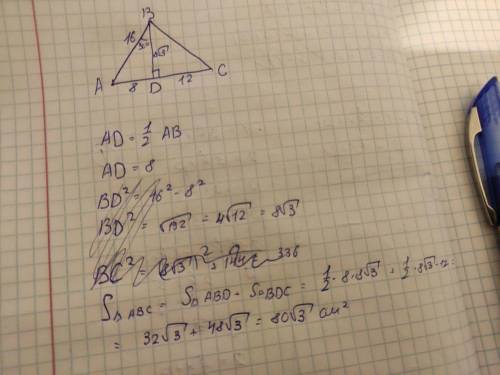 B
16 30° 8√3
A 8 D 12 C
AD = 1/2 AB
AD = 8
BD² = 16² - 8²
BD² = √192 = 4√12 = 8√3
BC² = (8√3)² + 144 = 336
S△ABC = S△ABD + S△BDC = 1/2 · 8 · 8√3 + 1/2 · 8√3 · 12 =
= 32√3 + 48√3 = 80√3 см²